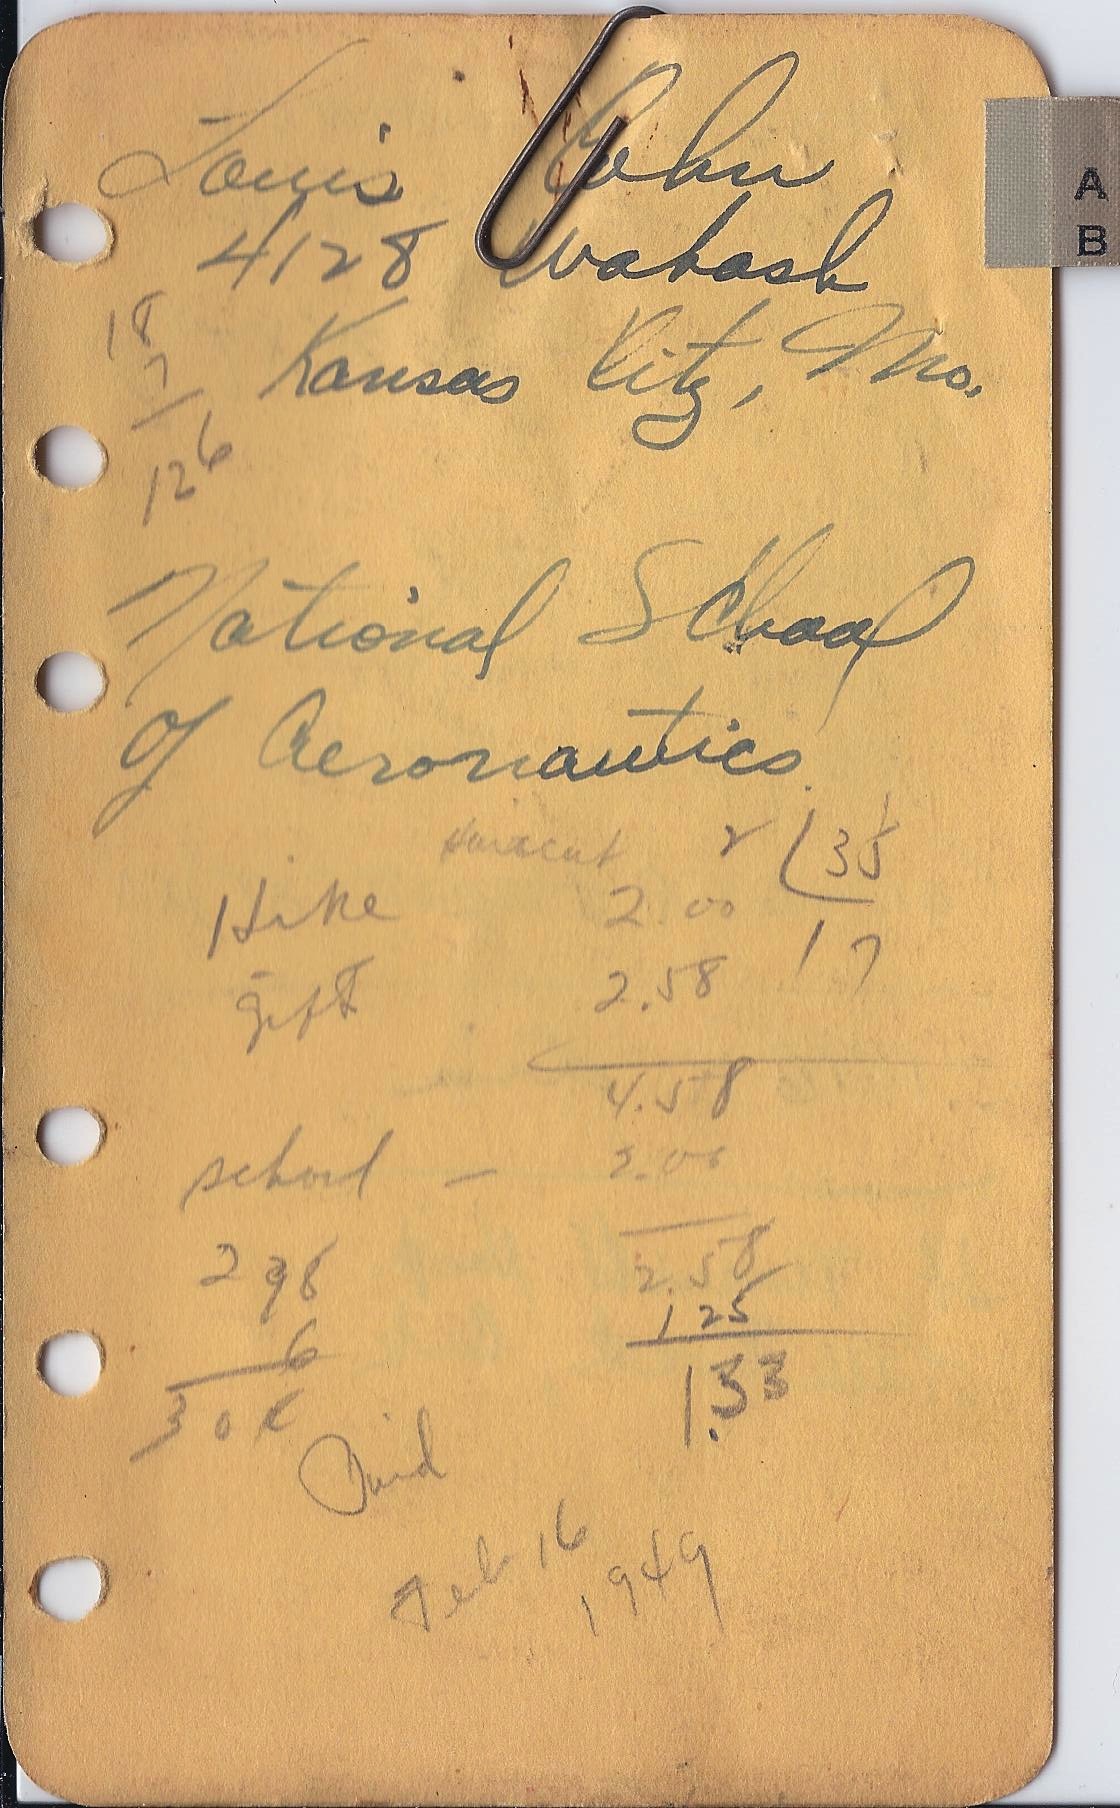 Louis Cohn
A
B
4128 Wabash
Kansas City, Mo.
18
7
126
National School
of Aeronautics
haircut 2 135
Hike 2.00 17
gift 2.58
4.58
school — 2.00
298 2.58
6 125
304 1.33
Paid
Feb 16
1949